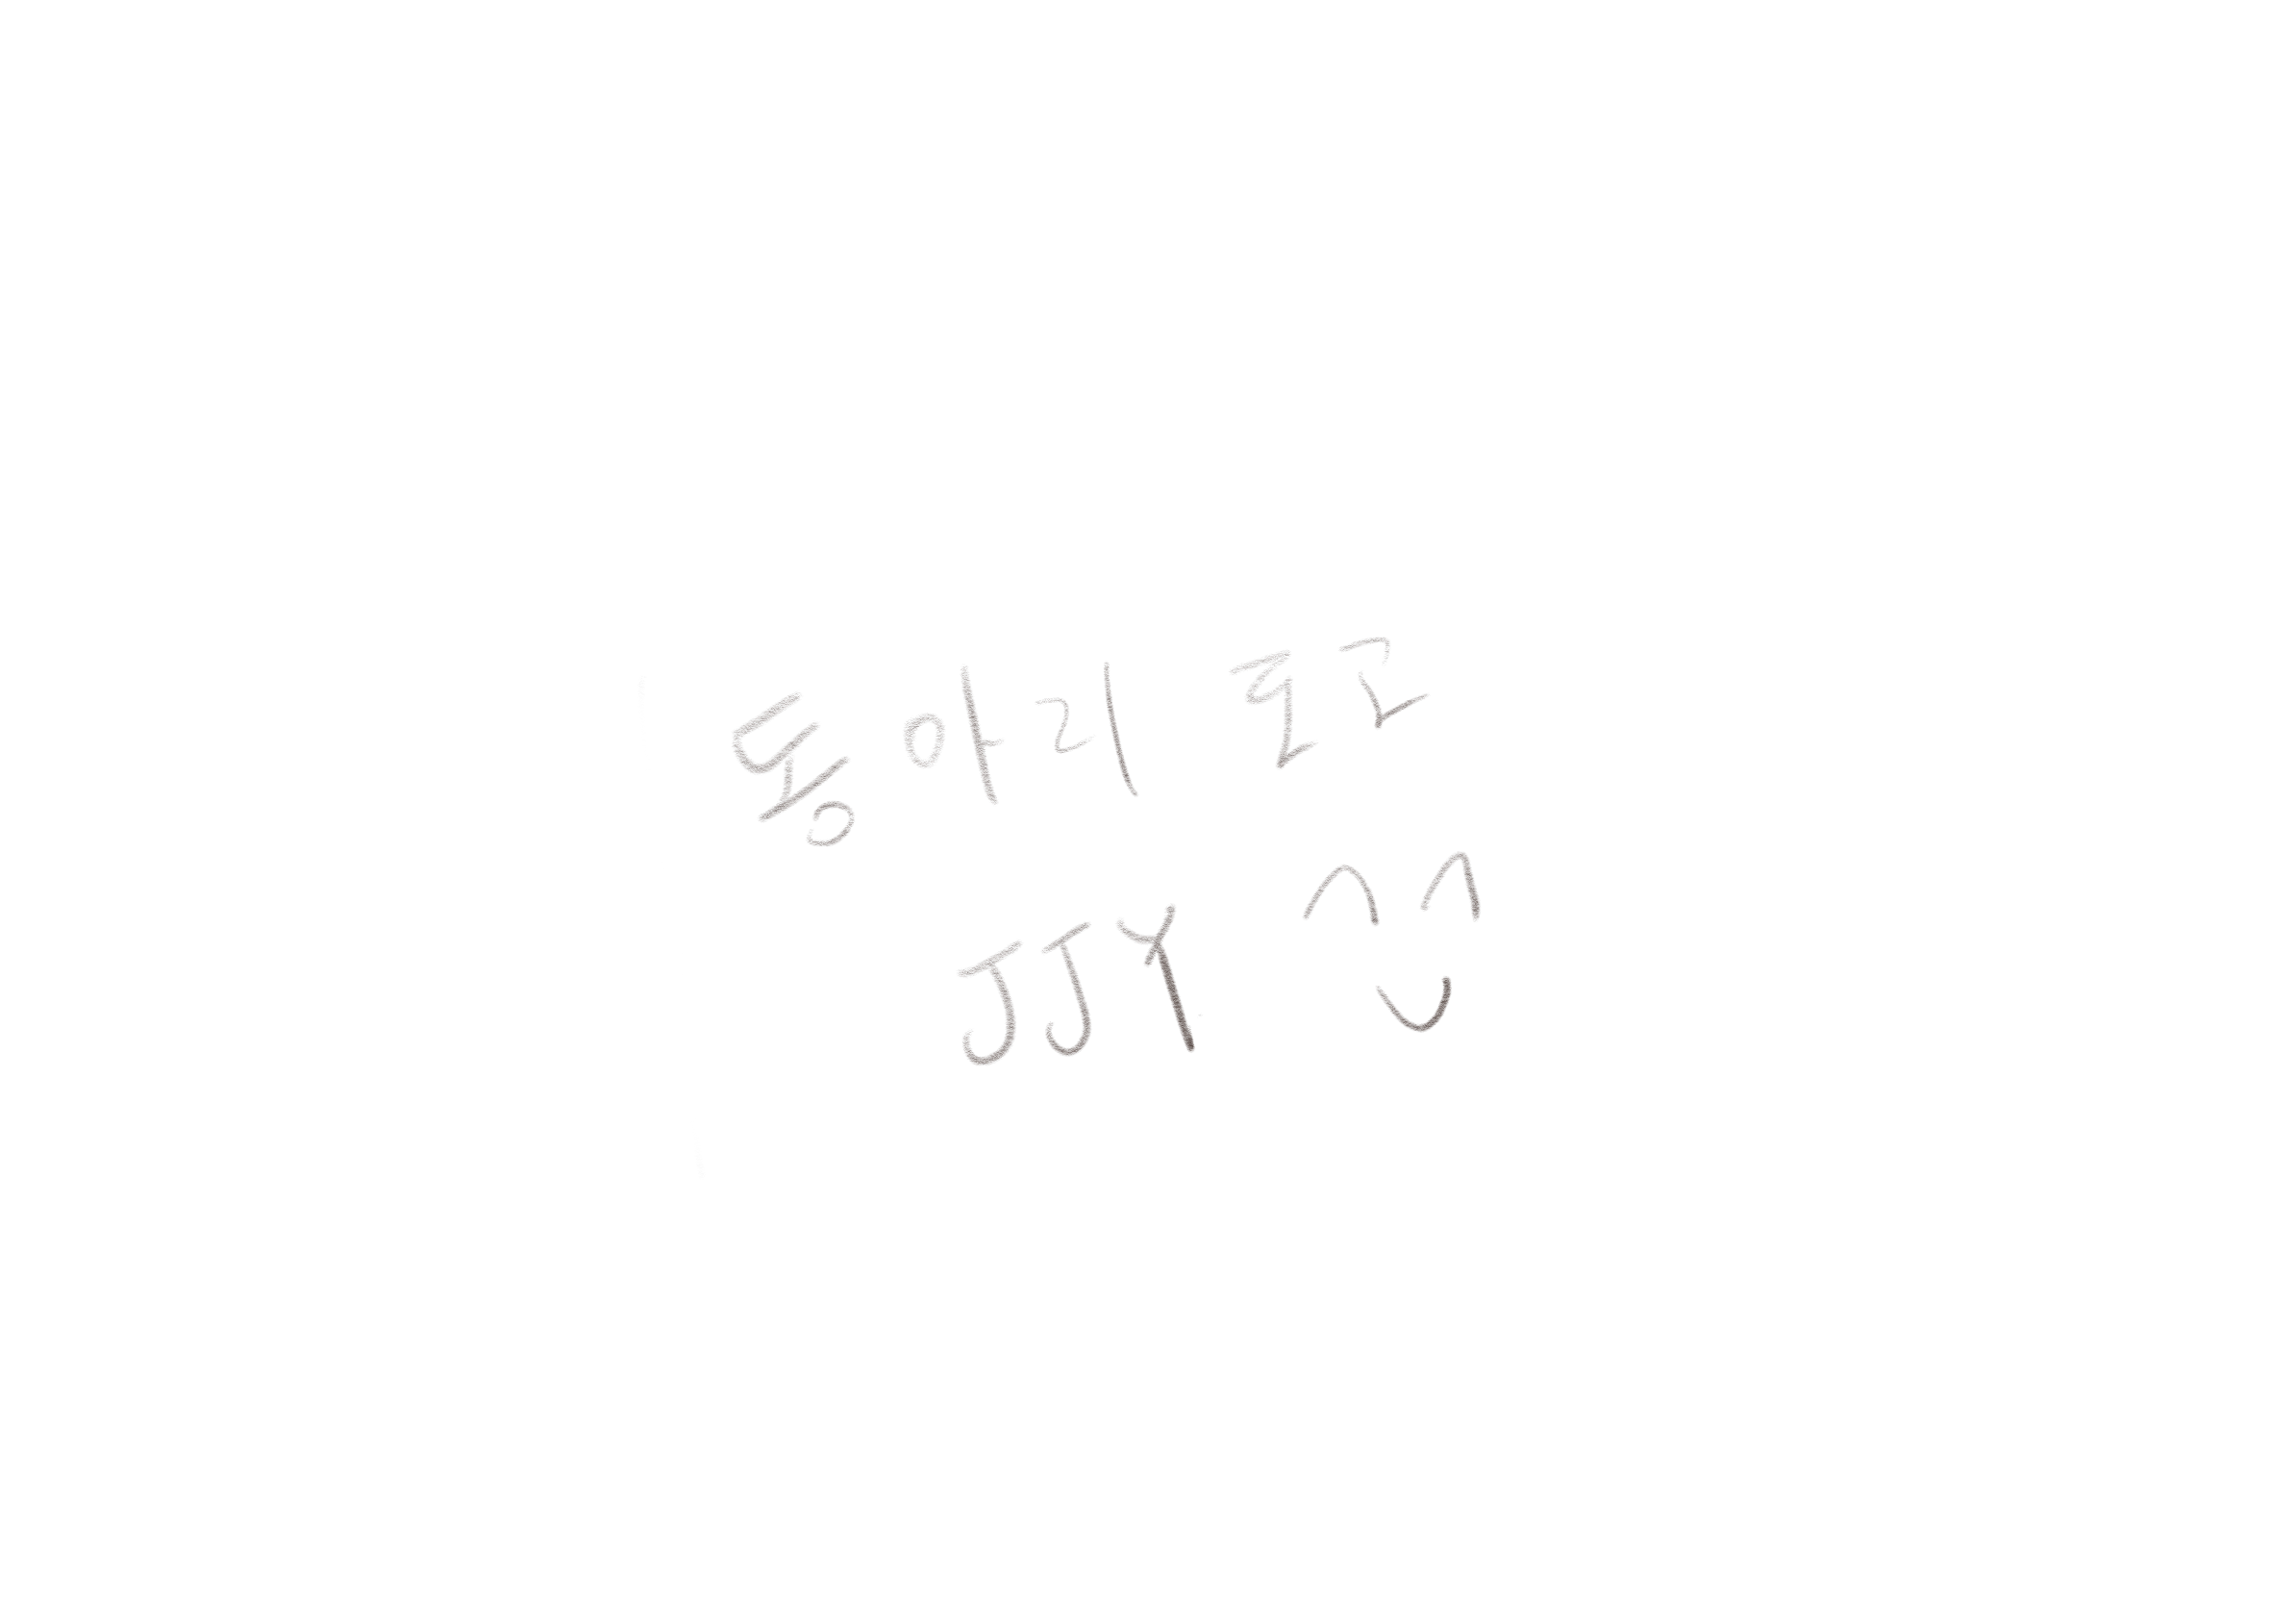 동아리 로고
JJY ^^